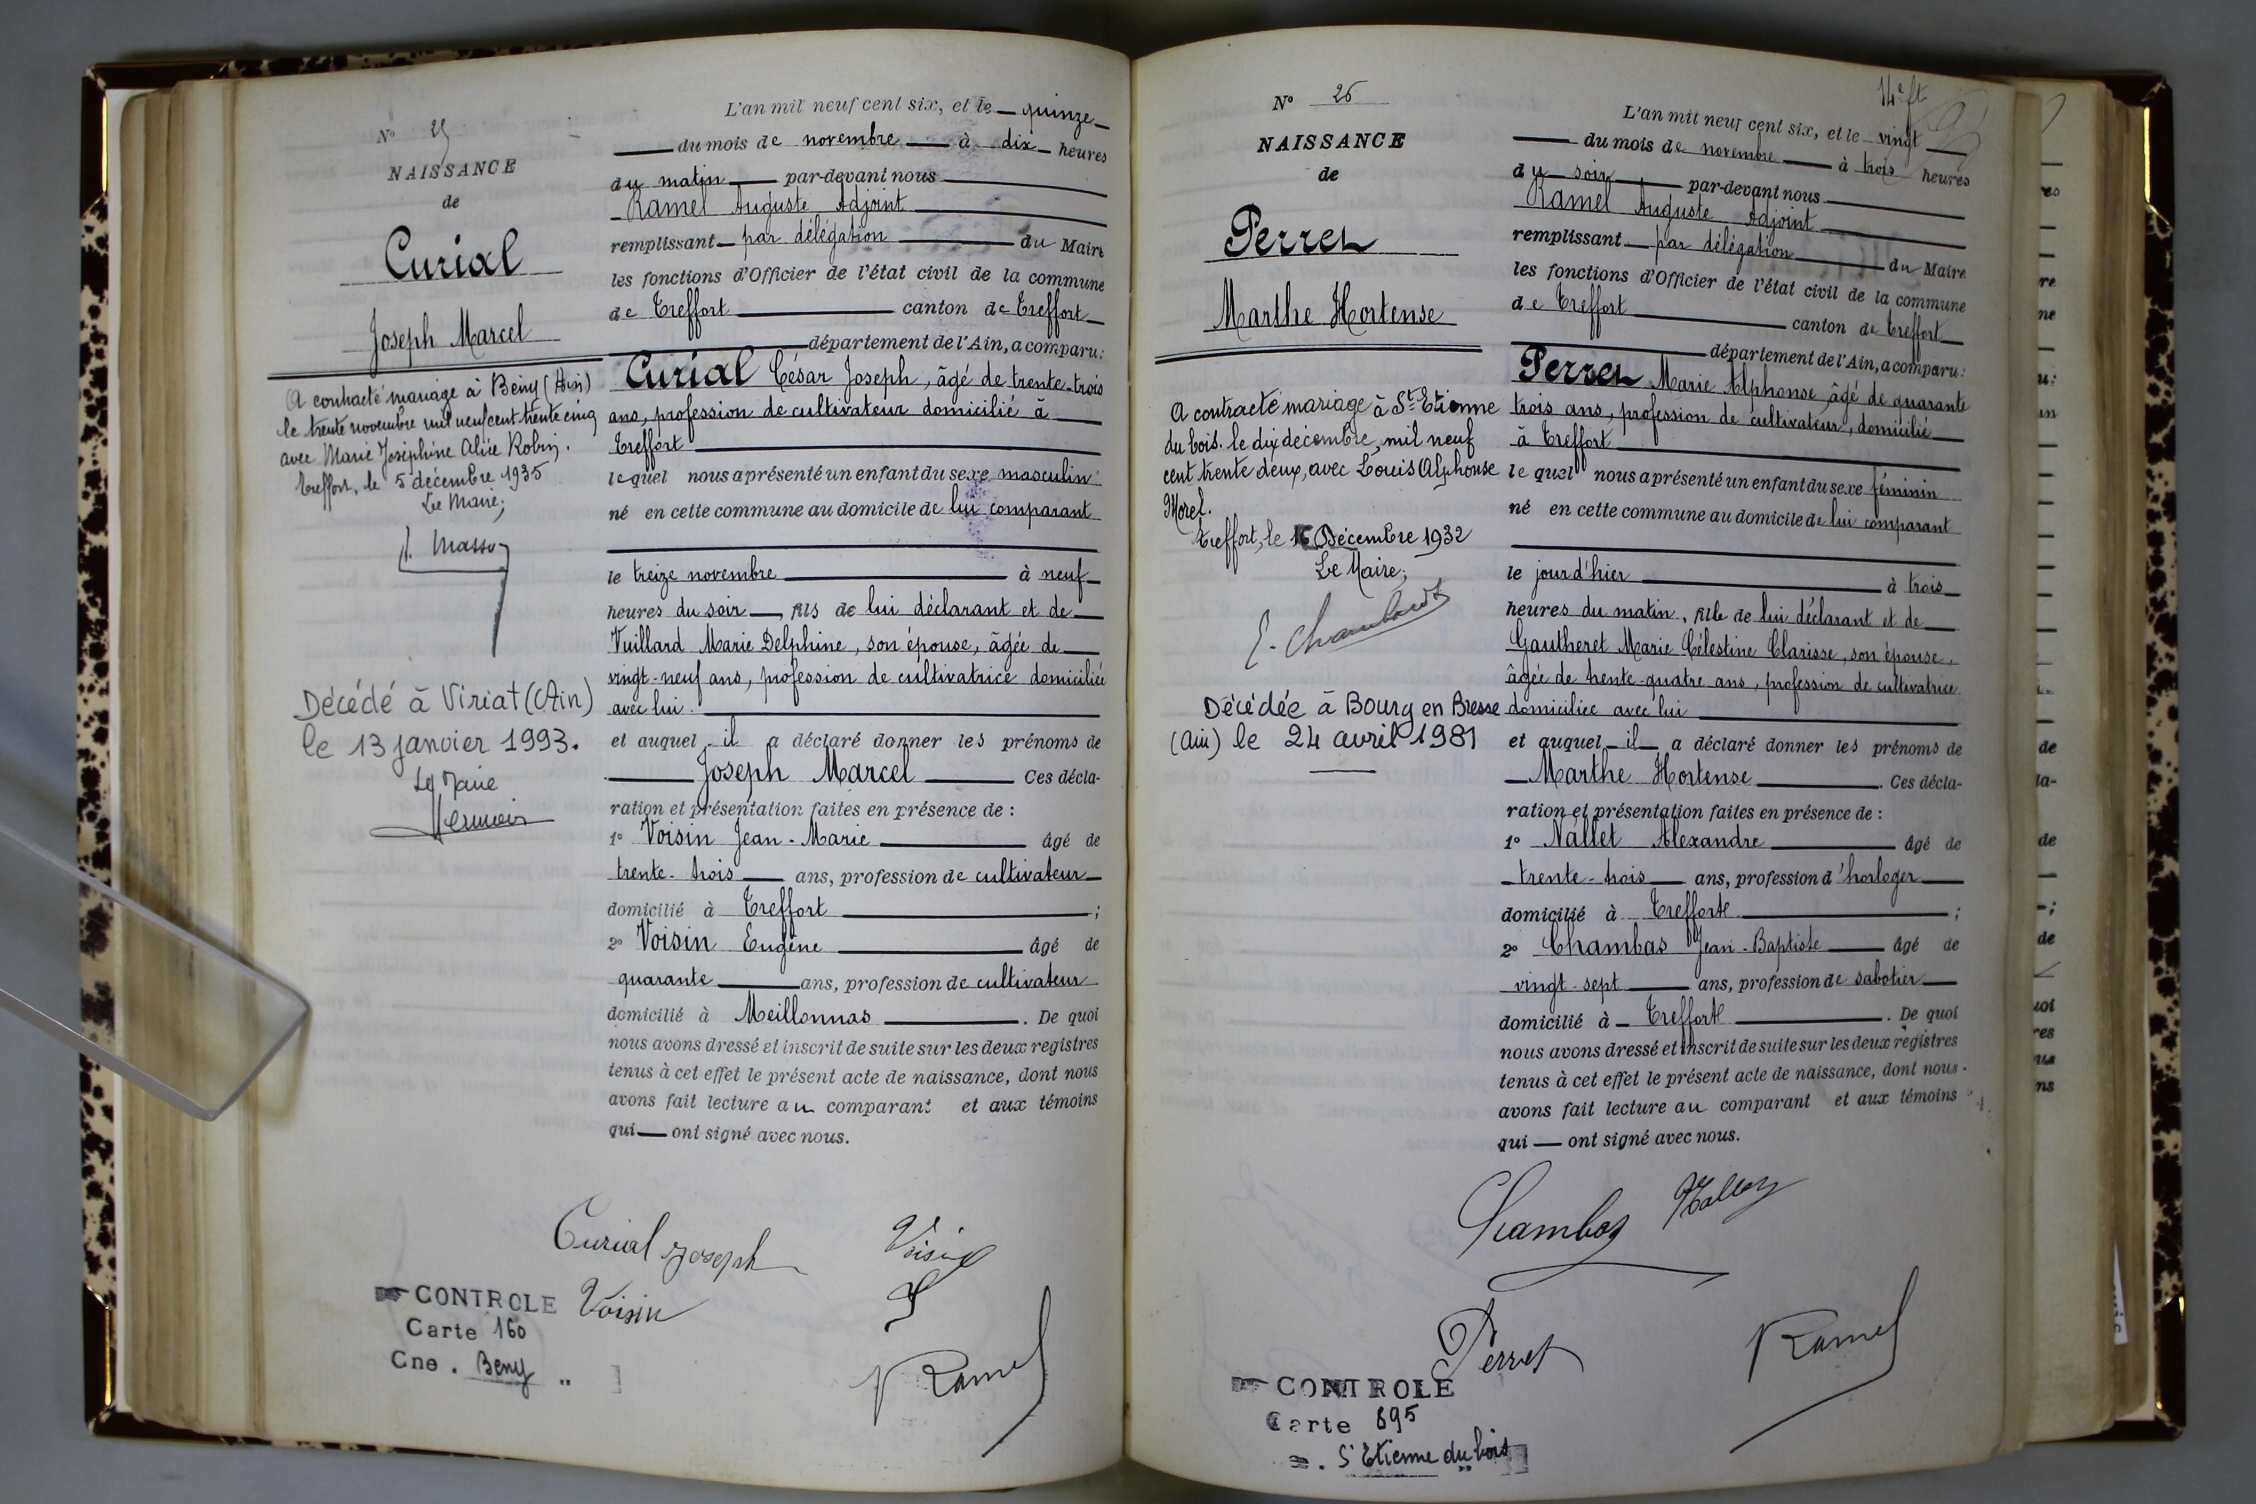 N° 25
NAISSANCE
de
Curial
Joseph Marcel
A contracté mariage à Bény (Ain)
le trente novembre mil neuf cent trente cinq
avec Marie Joséphine Alice Robin.
Treffort, le 5 décembre 1935
Le Maire,
Décédé à Viriat (Ain)
le 13 janvier 1993.
Le Maire
L'an mil neuf cent six, et le quinze
du mois de novembre à dix heures
du matin par-devant nous
Ramel Auguste Adjoint
remplissant par délégation du Maire
les fonctions d'Officier de l'état civil de la commune
de Treffort canton de Treffort
département de l'Ain, a comparu:
Curial César Joseph, âgé de trente-trois
ans, profession de cultivateur domicilié à
Treffort
lequel nous a présenté un enfant du sexe masculin
né en cette commune au domicile de lui comparant
le treize novembre à neuf
heures du soir, fils de lui déclarant et de
Vuillard Marie Delphine, son épouse, âgée de
vingt-neuf ans, profession de cultivatrice domiciliée
avec lui.
et auquel il a déclaré donner les prénoms de
Joseph Marcel Ces décla-
ration et présentation faites en présence de :
1° Voisin Jean-Marie âgé de
trente-trois ans, profession de cultivateur
domicilié à Treffort ;
2° Voisin Eugène âgé de
quarante ans, profession de cultivateur
domicilié à Meillonnas . De quoi
nous avons dressé et inscrit de suite sur les deux registres
tenus à cet effet le présent acte de naissance, dont nous
avons fait lecture au comparant et aux témoins
qui ont signé avec nous.
Curial Joseph Voisin
Voisin
Ramel
CONTROLE
Carte 160
Cne . Beny
N° 26
NAISSANCE
de
Perret
Marthe Hortense
A contracté mariage à St-Etienne
du bois. le dix décembre, mil neuf
cent trente deux, avec Louis Alphonse
Morel.
Treffort, le Décembre 1932
Le Maire,
Décédée à Bourg en Bresse
(Ain) le 24 avril 1981
L'an mil neuf cent six, et le vingt
du mois de novembre à trois heures
du soir par-devant nous
Ramel Auguste Adjoint
remplissant par délégation du Maire
les fonctions d'Officier de l'état civil de la commune
de Treffort canton de Treffort
département de l'Ain, a comparu:
Perret Marie Alphonse, âgé de quarante
trois ans, profession de cultivateur, domicilié
à Treffort
lequel nous a présenté un enfant du sexe féminin
né en cette commune au domicile de lui comparant
le jour d'hier à trois
heures du matin, fille de lui déclarant et de
Gautheret Marie Célestine Clarisse, son épouse,
âgée de trente-quatre ans, profession de cultivatrice
domiciliée avec lui
et auquel il a déclaré donner les prénoms de
Marthe Hortense . Ces décla-
ration et présentation faites en présence de :
1° Nallet Alexandre âgé de
trente-trois ans, profession d'horloger
domicilié à Treffort ;
2° Chambas Jean-Baptiste âgé de
vingt-sept ans, profession de sabotier
domicilié à Treffort . De quoi
nous avons dressé et inscrit de suite sur les deux registres
tenus à cet effet le présent acte de naissance, dont nous
avons fait lecture au comparant et aux témoins
qui ont signé avec nous.
Perret Ramel
CONTROLE
Carte 895
St Etienne du bois